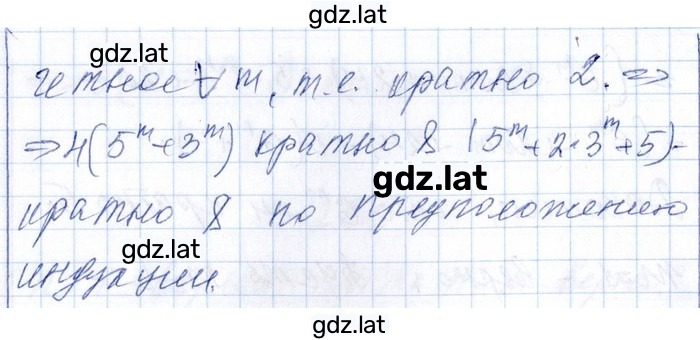 gdz.lat
gdz.lat
четное ∀ m, т.е. кратно 2. ⇒
⇒ 4(5^m + 3^m) кратно 8 (5^m + 2·3^m + 5) -
gdz.lat
кратно 8 по предположению
gdz.lat
индукции.
gdz.lat